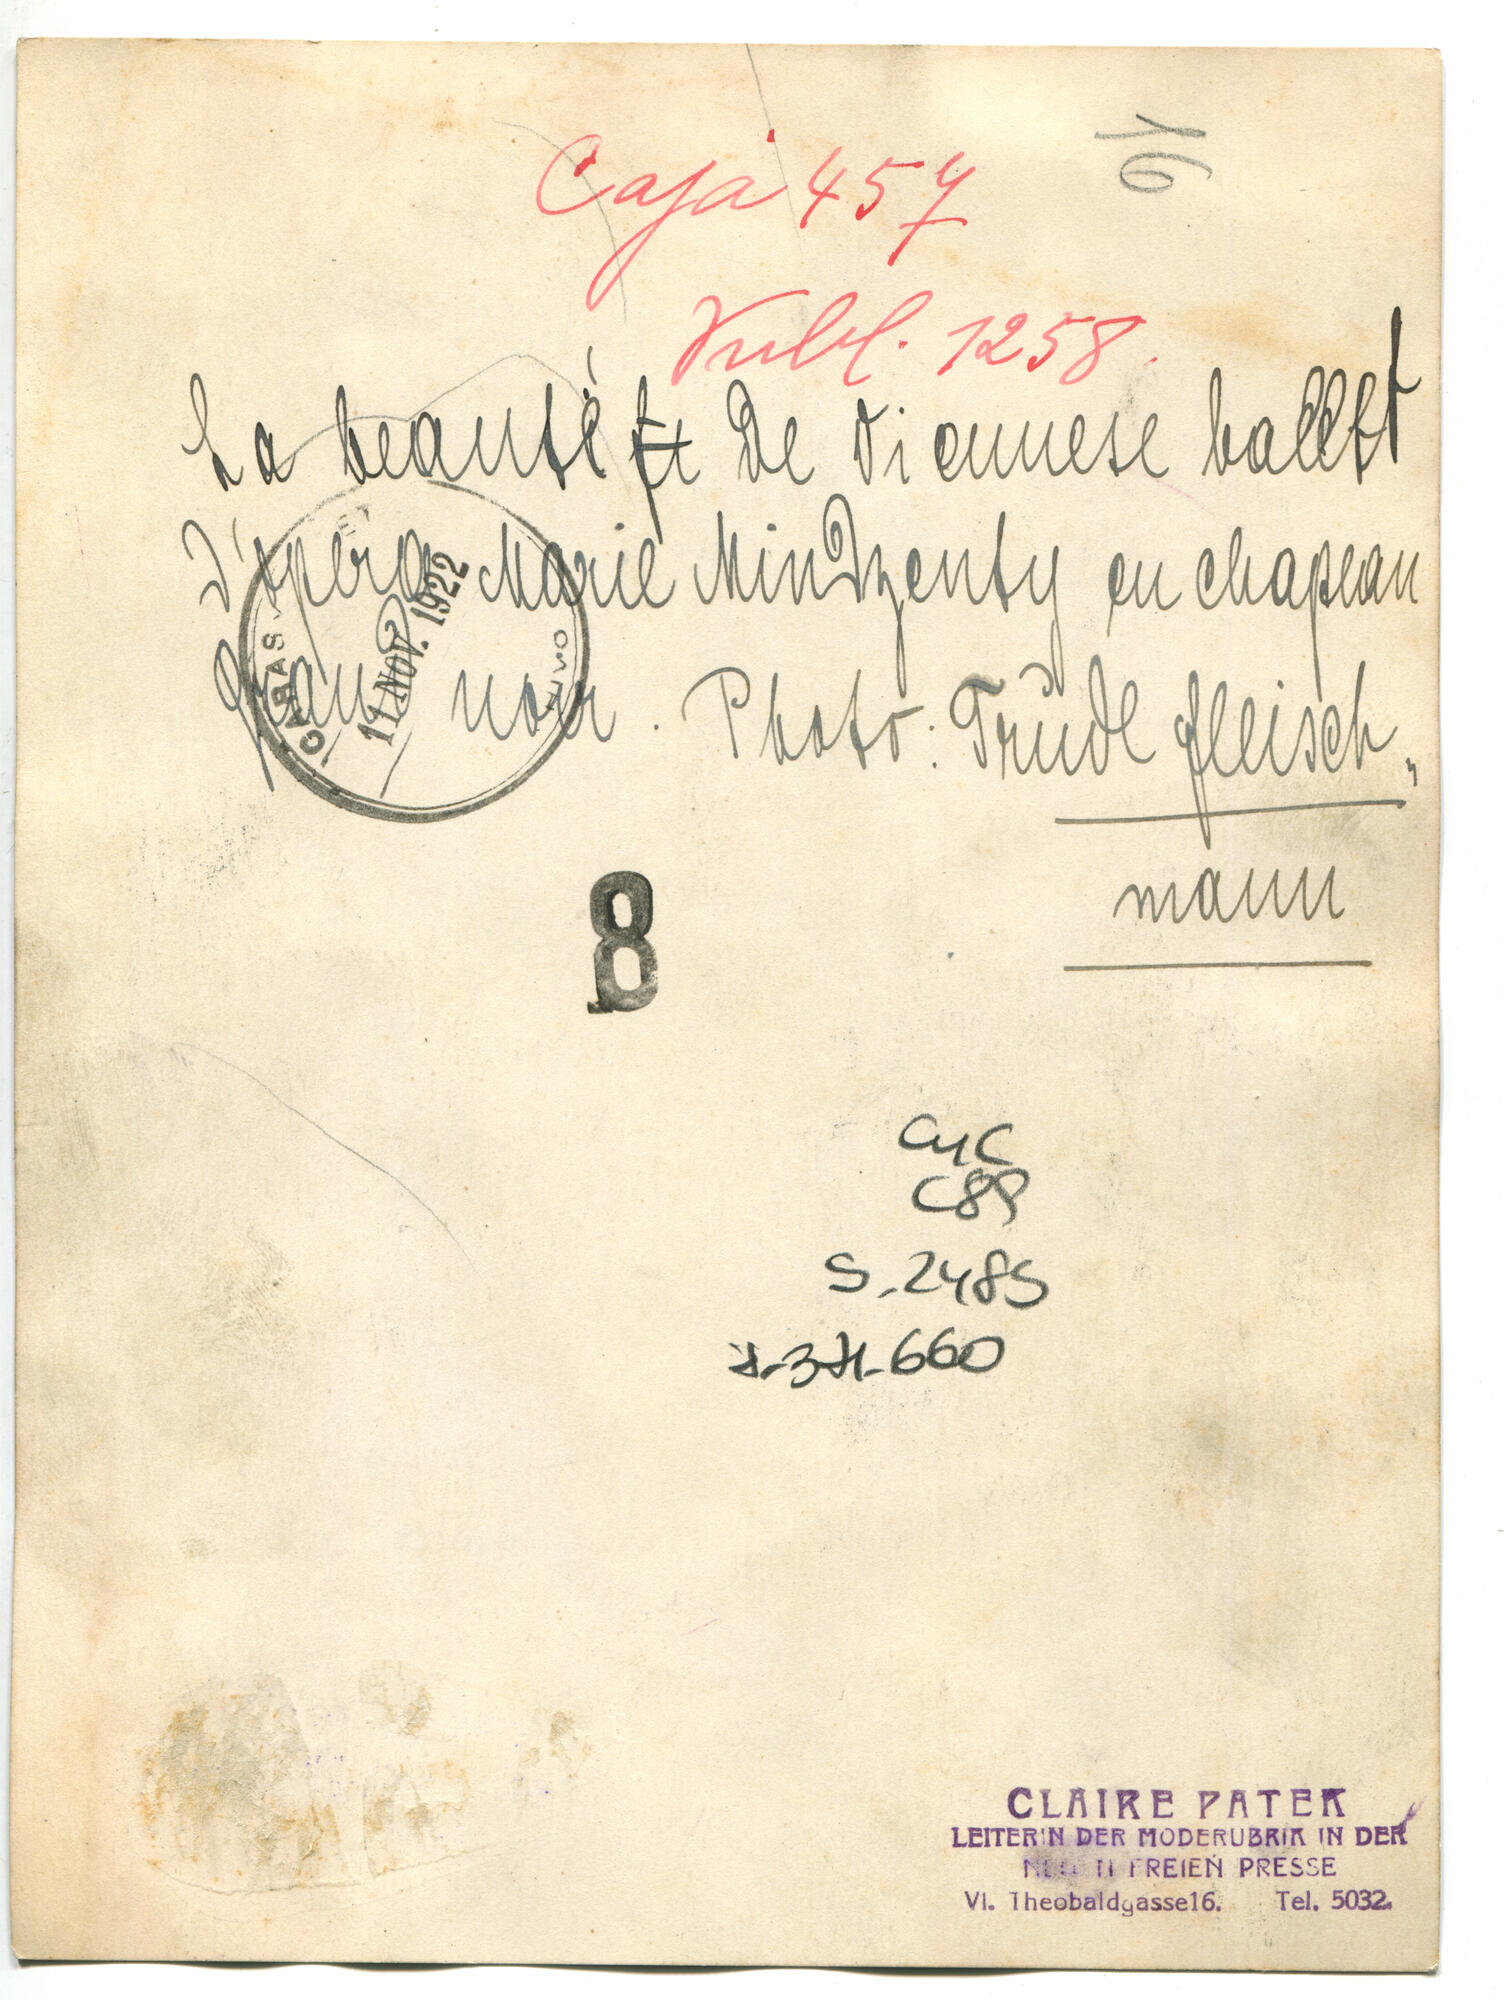 16
Caja 457
Publ. 1258.
La beauté de viennese ballet
d'opera Marie Mindzenty en chapeau
noir. Photo: Trude fleisch„
mann
CARAS
11 NOV. 1922
8
CyC
C89
S.2485
660
CLAIRE PATEK
LEITERIN DER MODERUBRIK IN DER
NEUEN FREIEN PRESSE
VI. Theobaldgasse16. Tel. 5032.